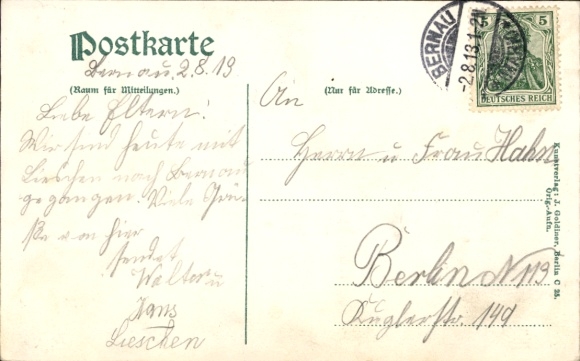 Postkarte
Bernau, 2.8.13
(Raum für Mitteilungen.)
Liebe Eltern!
Wir sind heute mit
Lieschen nach Bernau
gegangen. Viele Grü-
ße von hier
sendet
Walter u
Hans
Lieschen
An
(Nur für Adresse.)
Herrn u Frau Hahn
Berlin N 113
Kuglerstr 149
BERNAU
-2.8.13.1-
(MARK)
5
5
DEUTSCHES REICH
Kunstverlag: J. Goldiner, Berlin C 25.
Orig.-Aufn.